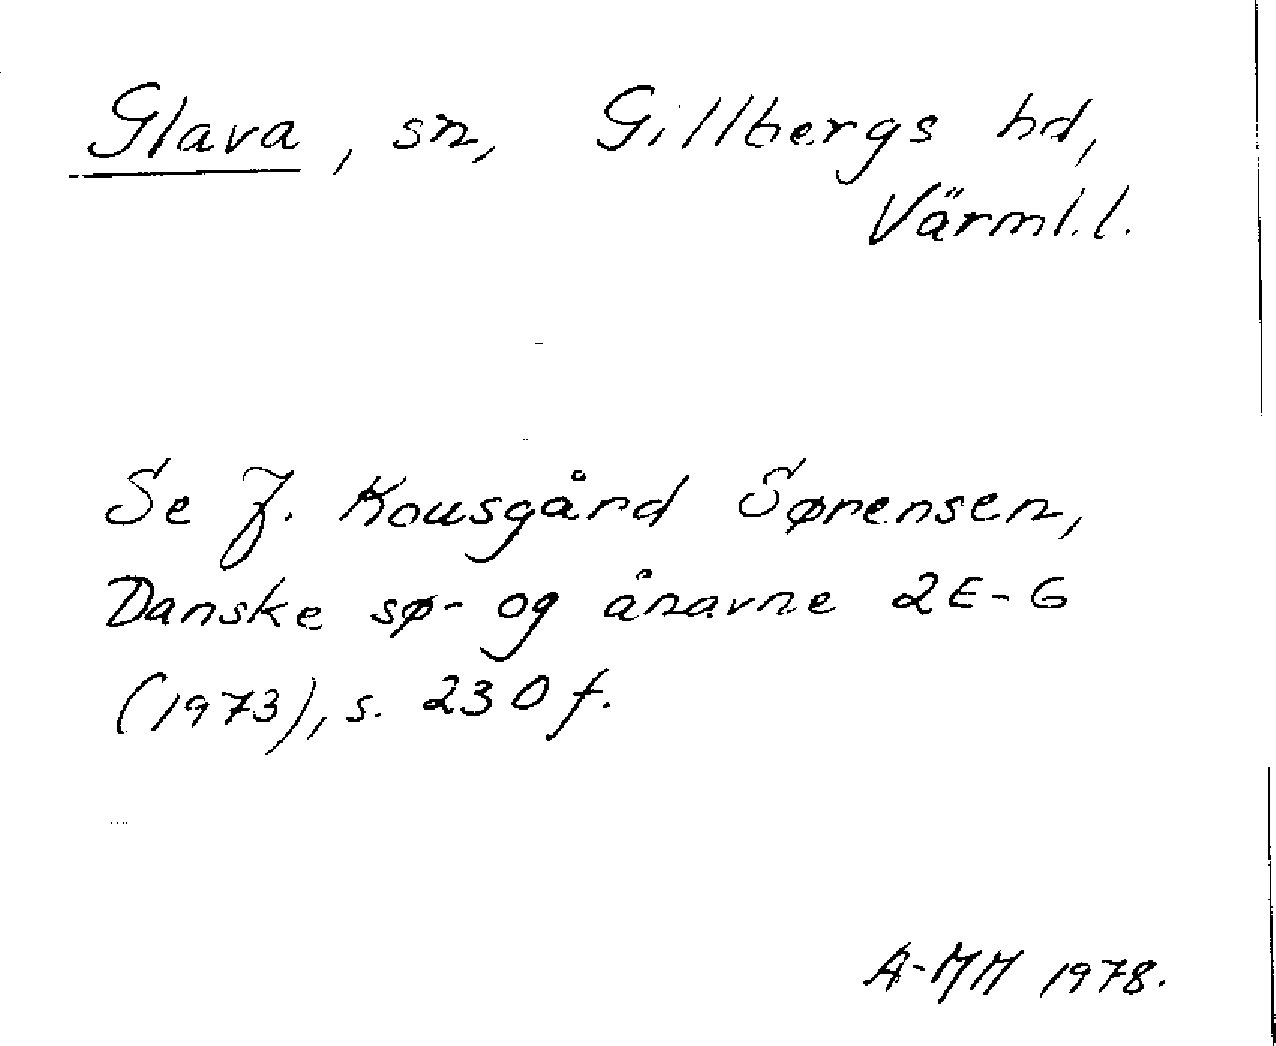 Glava, sn, Gillbergs hd,
Värml. l.
Se J. Kousgård Sørensen,
Danske sø- og ånavne 2E-G
(1973), s. 230 f.
A-MM 1978.